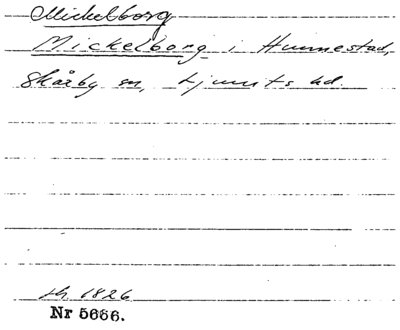 Mickelborg
Mickelborg i Hunnestad,
Skårby sn, Ljunits hd.
1826
Nr 5666.